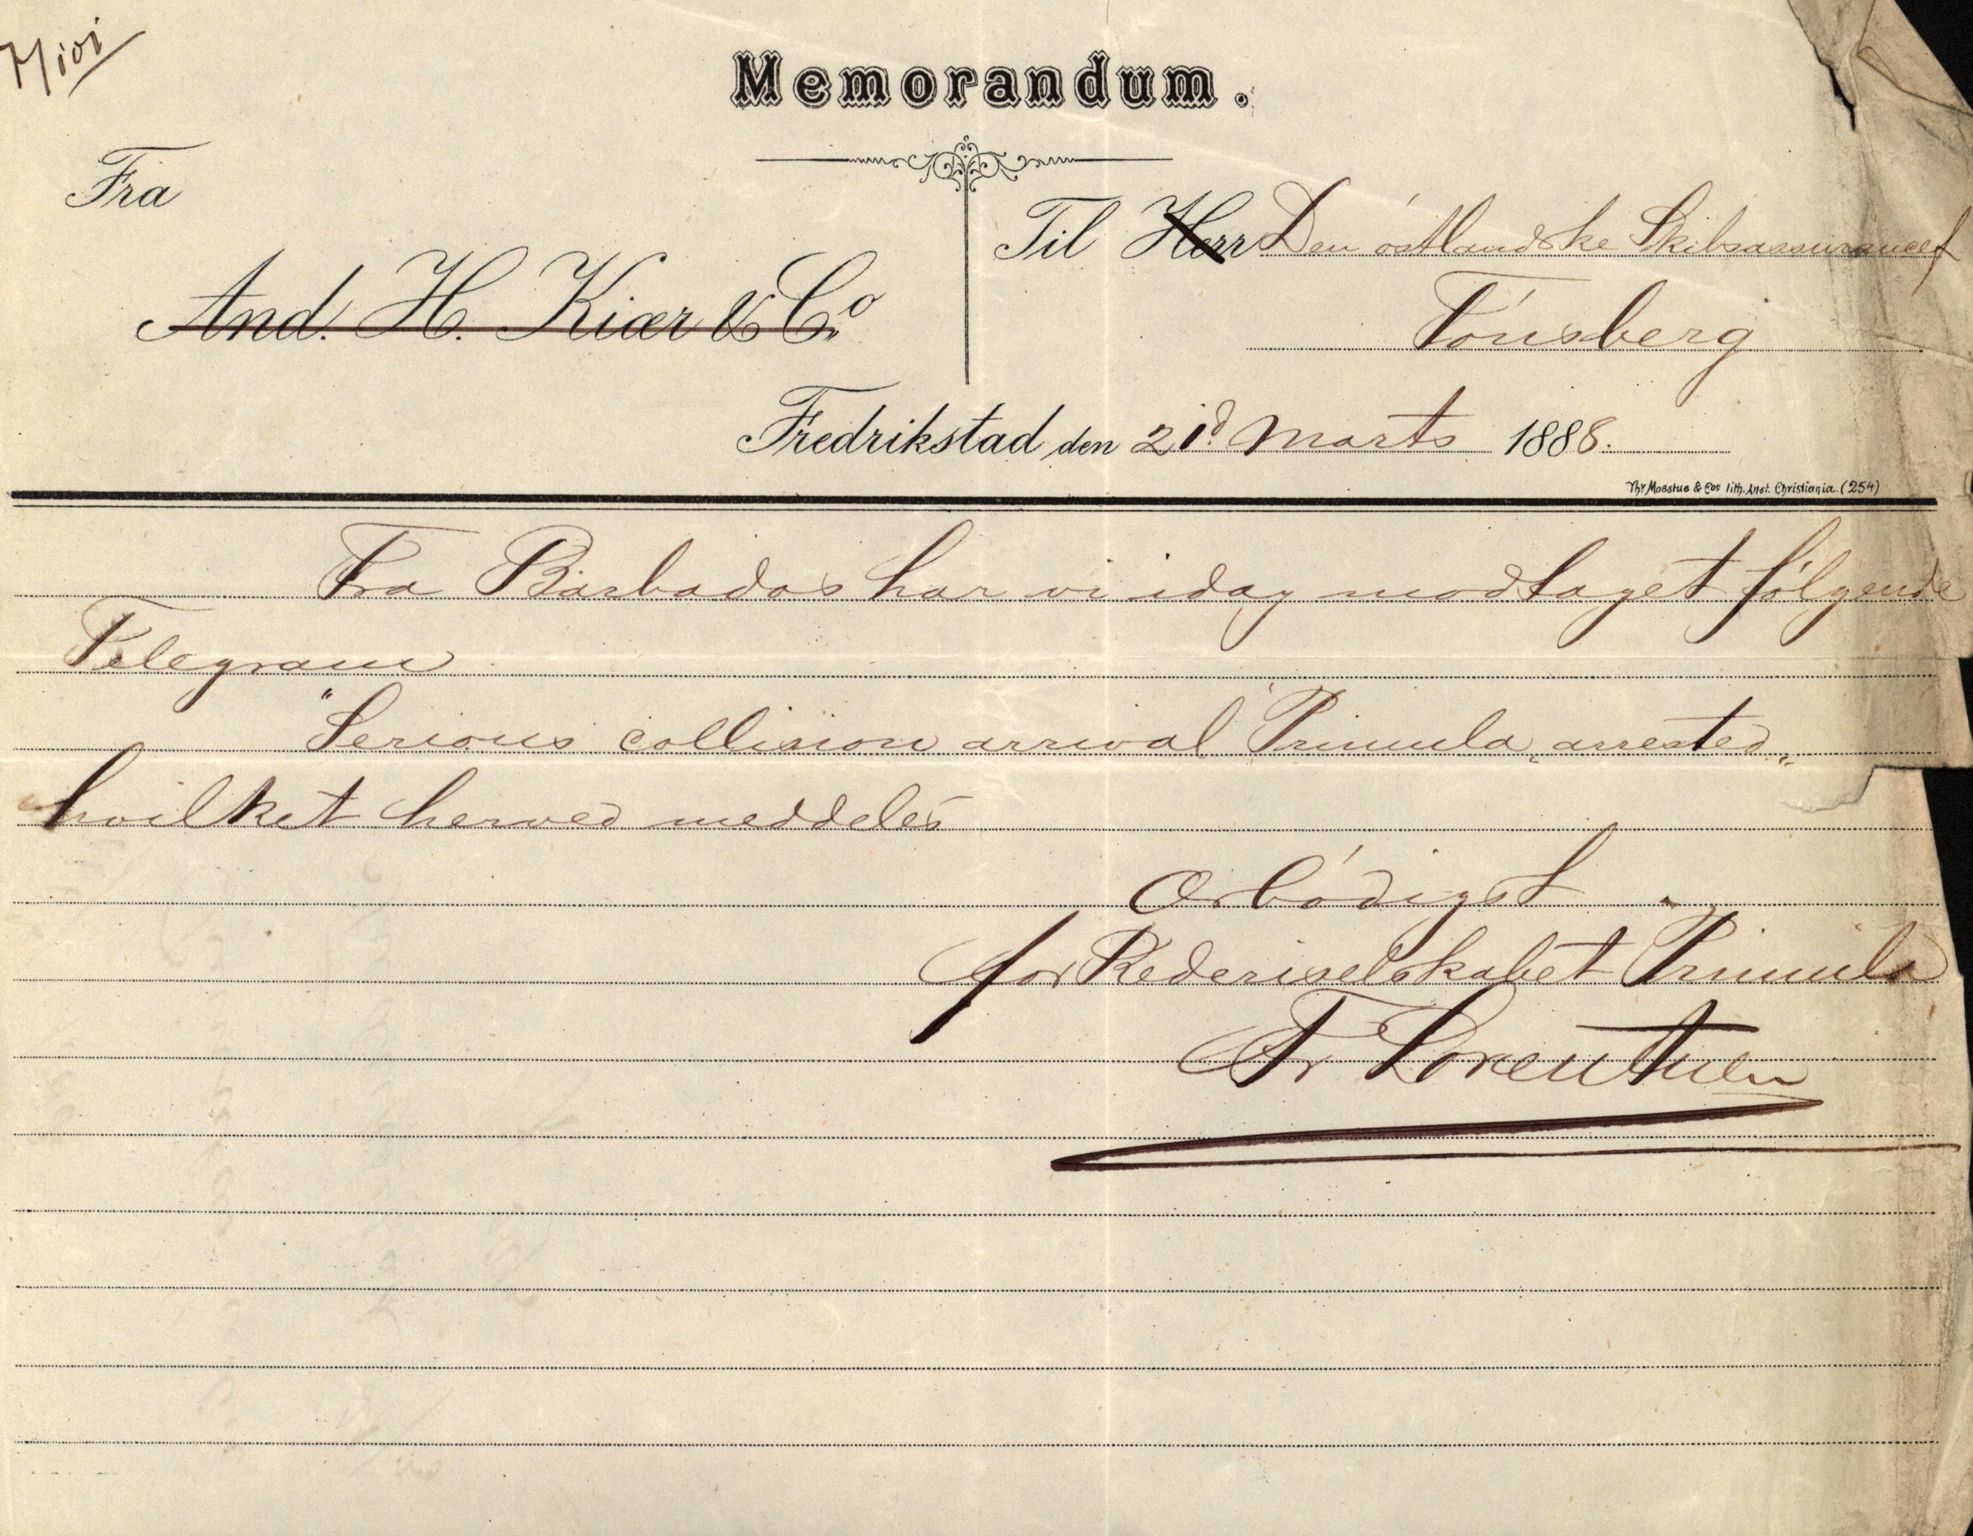 7/101
Memorandum.
Fra
Til Herr Den östlandske Skibsassurancef
And. H. Kiær & Co.
Tönsberg
Fredrikstad den 21d Marts 1888.
Thr Moestue & Cos lith. Anst. Christiania. (254)
Fra Barbados har vi idag modtaget følgende
Telegram
"Serious collision arrival "Primula" arrested"
hvilket herved meddeles
Ærbödigst
for Rederiselskabet Primula
Fr Lorentzen